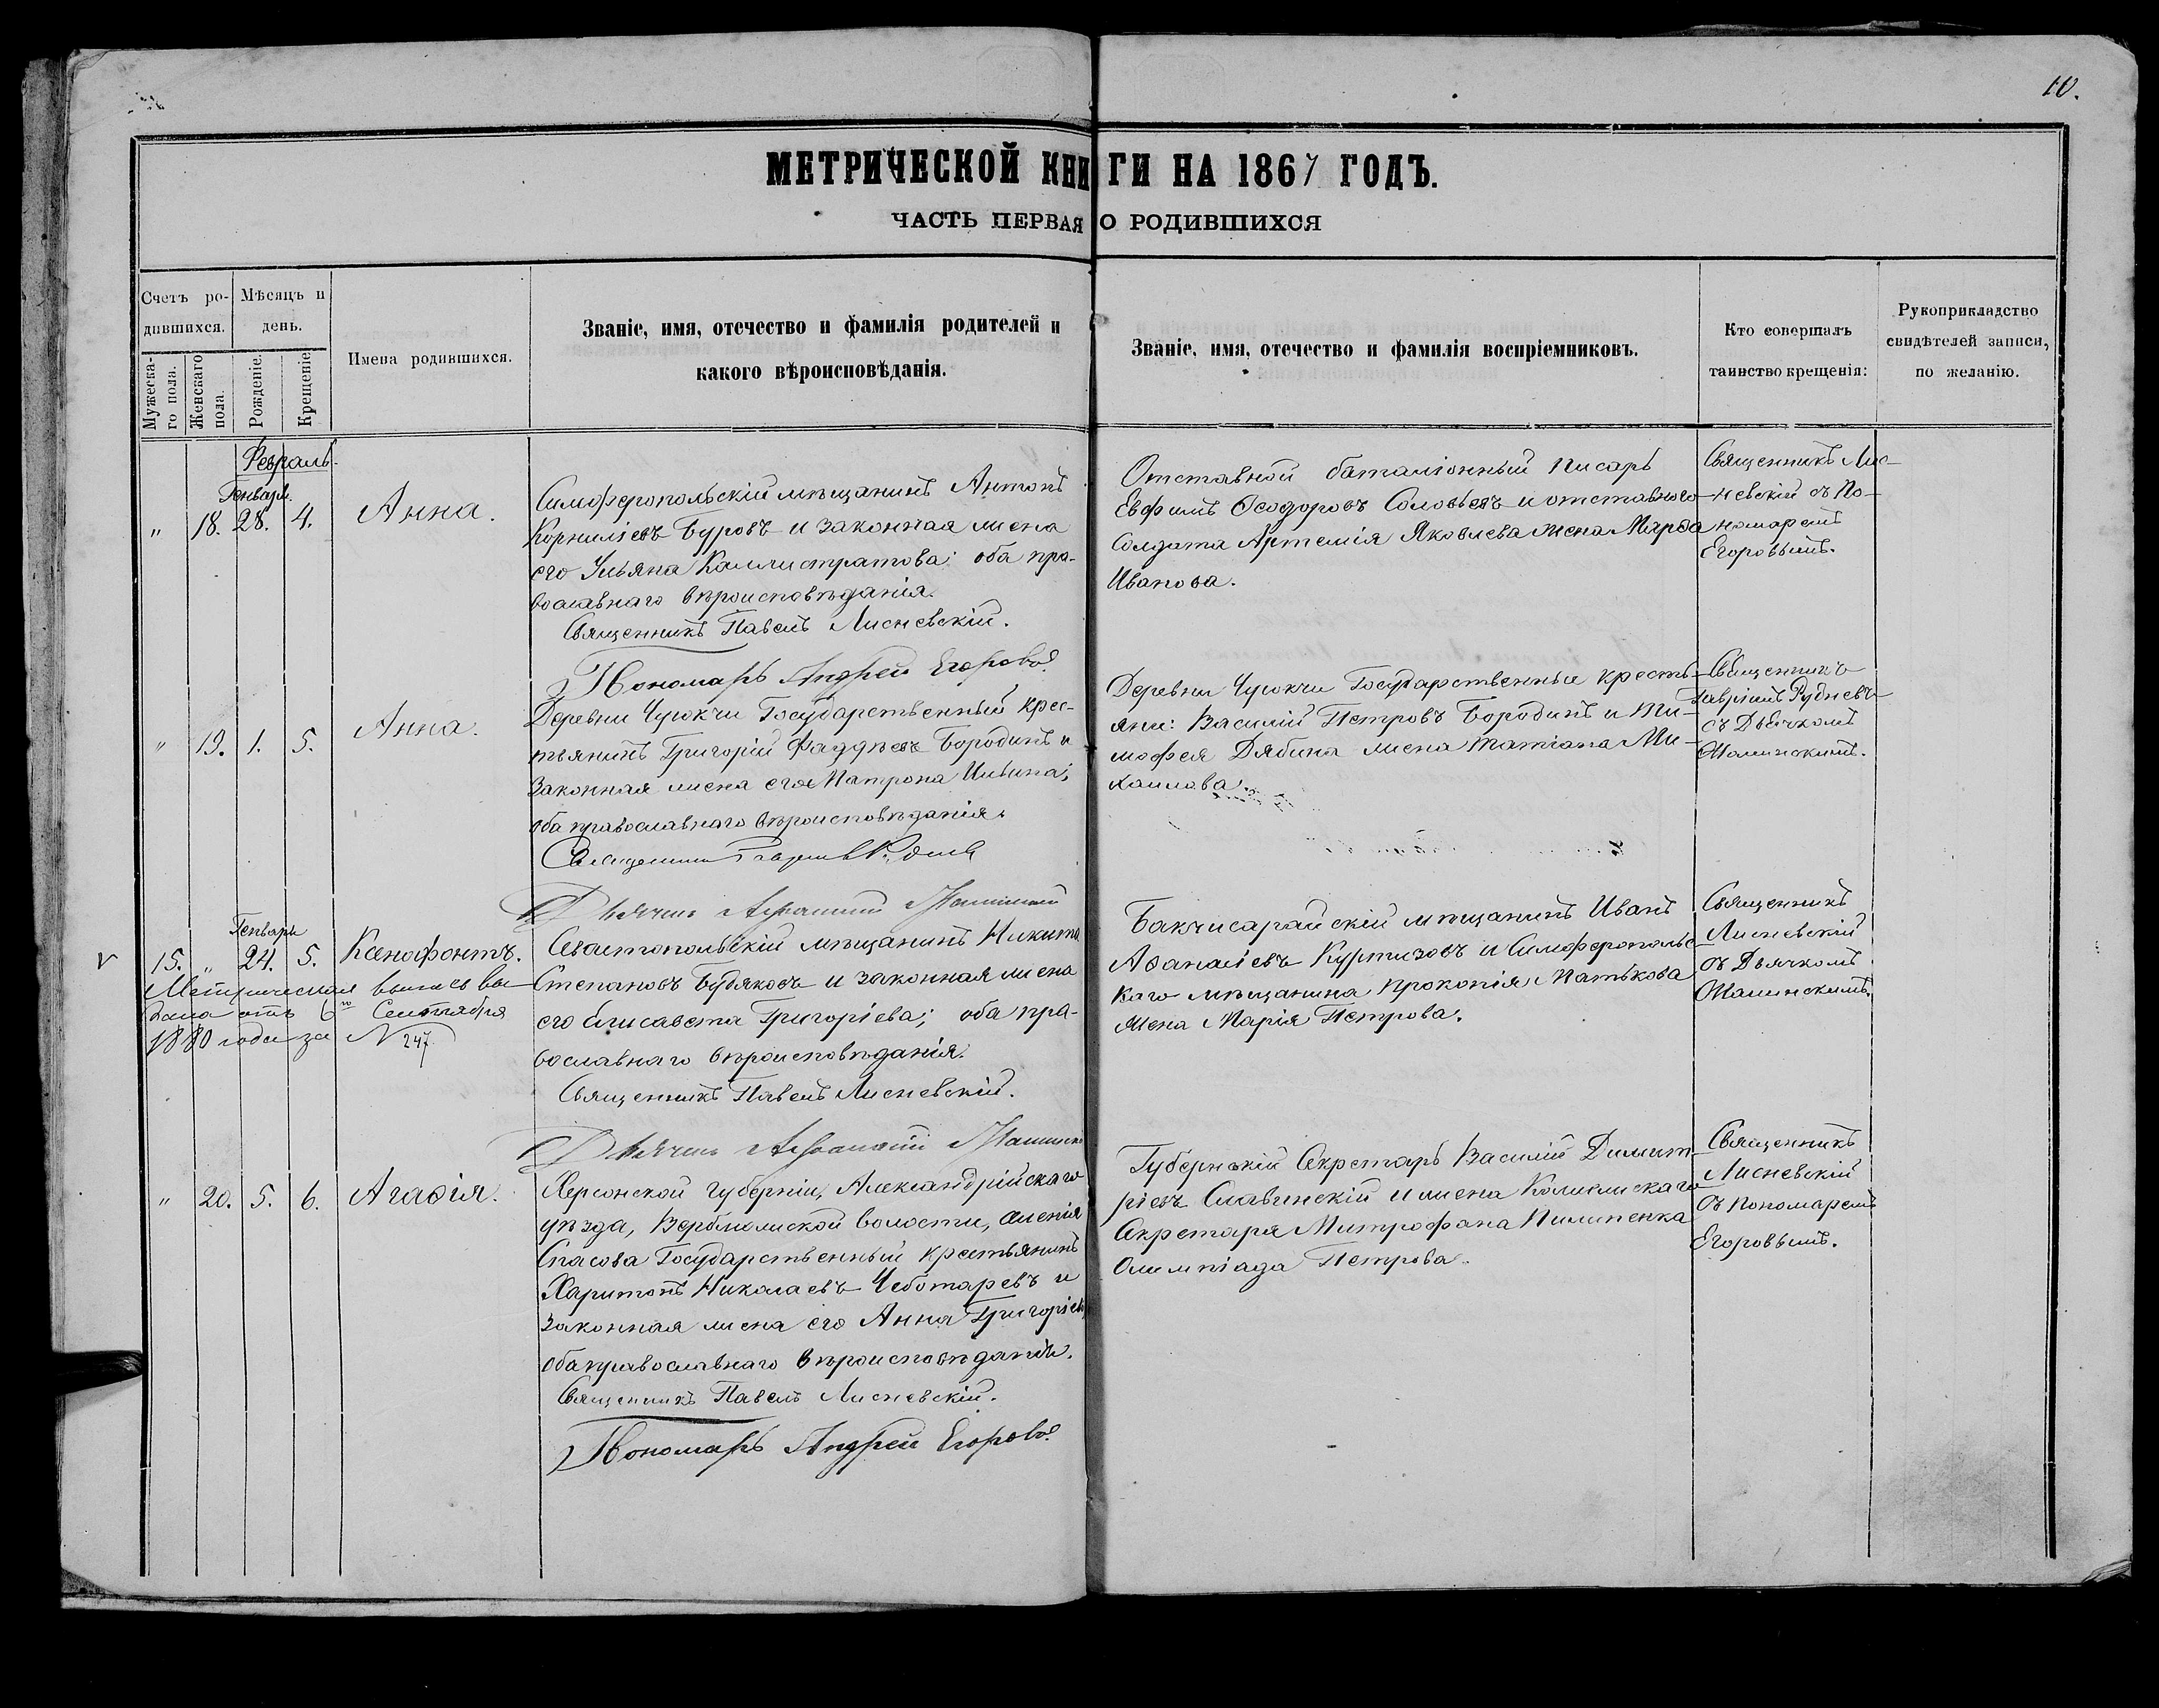 10.
МЕТРИЧЕСКОЙ КНИГИ НА 1867 ГОДЪ.
ЧАСТЬ ПЕРВАЯ О РОДИВШИХСЯ
Счетъ ро-
дившихся.
Мужеска-
го пола.
Женскаго
пола.
Мѣсяцъ и
день.
Рожденіе.
Крещеніе.
Имена родившихся.
Званіе, имя, отечество и фамилія родителей и
какого вѣроисповѣданія.
Званіе, имя, отечество и фамилія воспріемниковъ.
Кто совершалъ
таинство крещенія:
Рукоприкладство
свидѣтелей записи,
по желанію.
Февраль.
Генваря.
" 18. 28. 4.
Анна.
Симферопольскій мѣщанинъ Антонъ
Корниліевъ Буровъ и законная жена
его Ульяна Каллистратова; оба пра-
вославнаго вѣроисповѣданія.
Священникъ Павелъ Лисневскій.
Пономарь Андрей Егоровъ
Отставной баталіонный писарь
Евфимъ Ѳеодоровъ Соловьевъ и отставного
Солдата Артемія Яковлева жена Марѳа
Иванова.
Священникъ Лис-
невскій съ По-
номаремъ
Егоровымъ.
" 19. 1. 5.
Анна.
Деревни Чуюкчи Государственный крес-
тьянинъ Григорій Фаддѣевъ Бородинъ и
законная жена его Матрона Ильина;
оба православнаго вѣроисповѣданія.
Священникъ Гавріилъ Рудневъ
Дьячекъ Аѳанасій
Деревни Чуюкчи Государственные кресть-
яни: Василій Петровъ Бородинъ и Ти-
мофея Дябина жена Татіана Ми-
хаилова.
Священникъ
Гавріилъ Рудневъ
съ Дьячкомъ
v
Генваря
15. " 24. 5.
Ксенофонтъ.
Метрическая выпись вы-
дана отъ 6го Сентября
1880 года за № 247
Севастопольскій мѣщанинъ Никита
Степановъ Будяковъ и законная жена
его Елисавета Григоріева; оба пра-
вославнаго вѣроисповѣданія.
Священникъ Павелъ Лисневскій.
Дьячекъ Аѳанасій
Бакчисарайскій мѣщанинъ Иванъ
Аѳанасіевъ Куртизовъ и Симферопольс-
каго мѣщанина Прокопія Матькова
жена Марія Петрова.
Священникъ
Лисневскій
съ Дьячкомъ
" 20. 5. 6.
Агаѳія.
Херсонской губерніи, Александрійскаго
уѣзда, Верблюжской волости, селенія
Спасова Государственный крестьянинъ
Харитонъ Николаевъ Чеботаревъ и
законная жена его Анна Григоріева
оба православнаго вѣроисповѣданія.
Священникъ Павелъ Лисневскій.
Пономарь Андрей Егоровъ
Губернскій Секретарь Василій Димит-
ріевъ Славинскій и жена Коллежскаго
Секретаря Митрофана Пилипенка
Олимпіада Петрова.
Священникъ
Лисневскій
съ Пономаремъ
Егоровымъ.